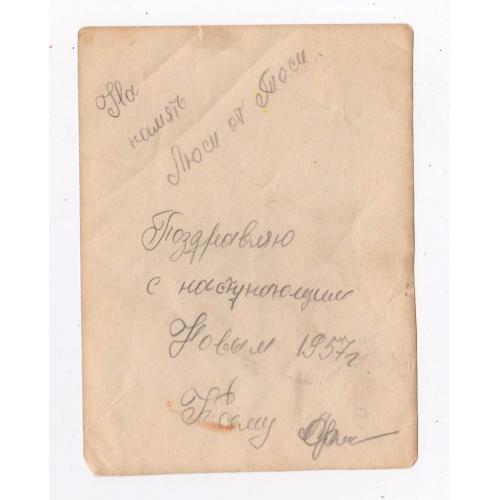 На
память
Люси от Тоси.
Поздравляю
с наступающим
Новым 1957г